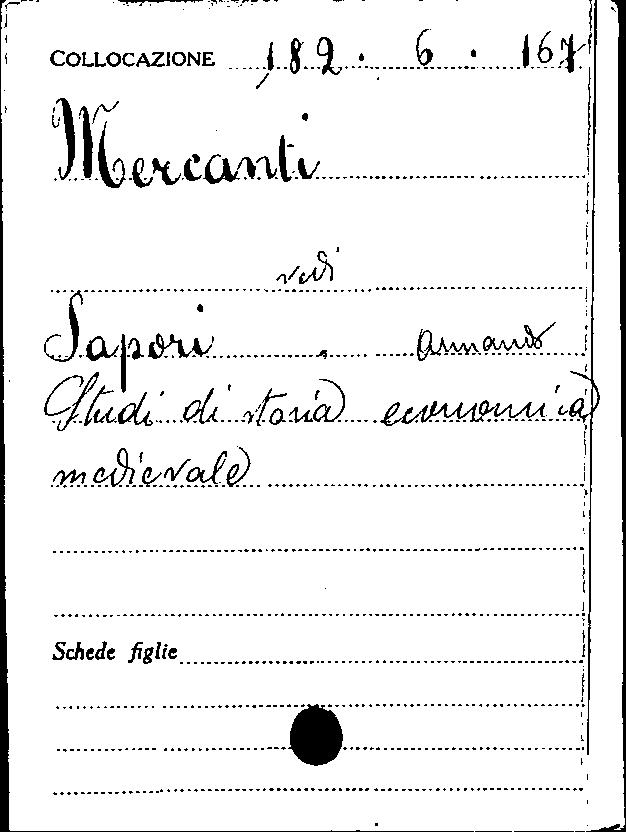 COLLOCAZIONE 182 . 6 . 167
Mercanti
vedi
Sapori . Armando
Studi di storia economica
medievale
Schede figlie